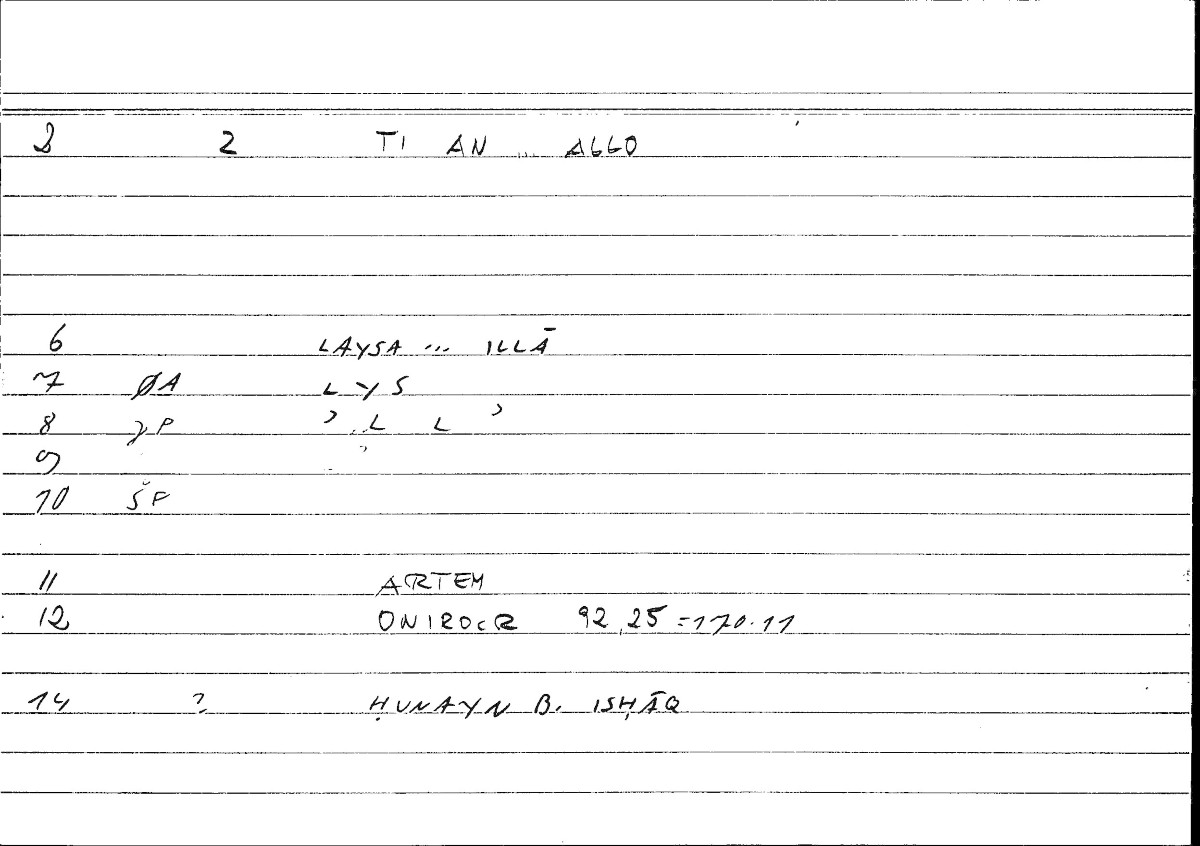 2 2 TI AN ... ALLO
6 LAYSA ... ILLĀ
7 ØA L Y S
8 γP ʾ L L ʾ
9
10 ŠF
11 ARTEM
12 ONIROCR 92,25 = 170.11
14 ? ḤUNAYN B. ISḤĀQ